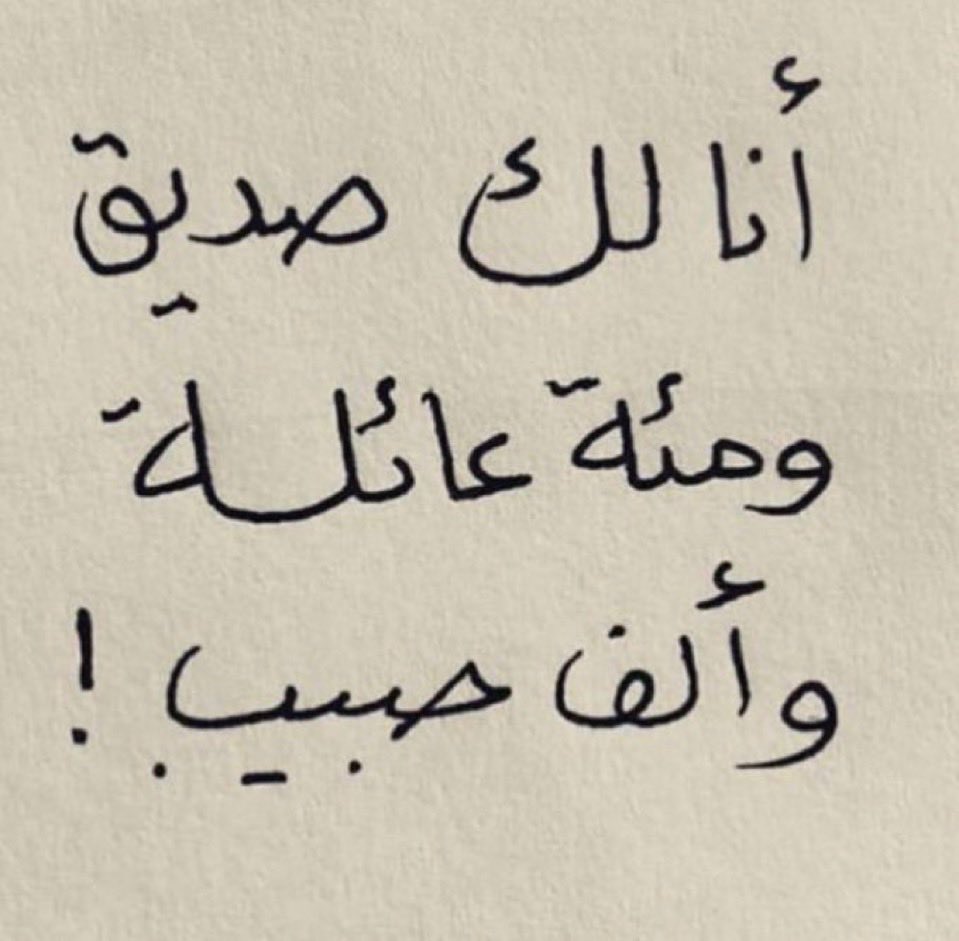 أنا لك صديق
ومئة عائلة
وألف حبيب !